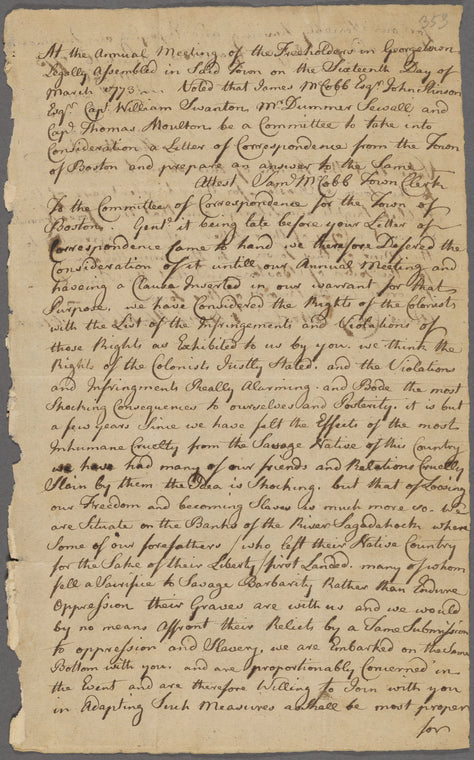 353
At the Annual Meeting of the Freeholders in Georgetown
Legally Assembled in Said Town on the Sixteenth Day of
March 1773 Voted that James McCobb Esqr John Stinson
Esqr Capt William Swanton Mr Dummer Sewall and
Capt Thomas Moulton be a Committee to take into
Consideration a Letter of Correspondence from the Town
of Boston and prepare an answer to the Same
Attest Saml McCobb Town Clerk
To the Committee of Correspondence for the Town of
Boston Gentn it being late before your Letter of
Correspondence Came to hand we therefore Defered the
Consideration of it untill our Annual Meeting and
haveing a Clause Inserted in our warrant for that
Purpose. we have Considered the Rights of the Colonists
with the List of the Infringements and Violations of
those Rights as Exhibited to us by you. we think the
Rights of the Colonists Justly Stated. and the Violations
and Infringments Really Alarming. and Bode the most
Shocking Consequences to ourselves and Posterity. it is but
a few years Since we have felt the Effects of the most
Inhumane Cruelty from the Savage Native of this Country
we have had many of our friends and Relations Cruelly
Slain by them the Idea is Shocking. but that of Loosing
our Freedom and becoming Slaves is much more so. We
are Situate on the Banks of the River Sagadahock where
Some of our forefathers who left their Native Country
for the Sake of their Liberty first Landed. many of whom
fell a Sacrifice to Savage Barbarity Rather than Endure
Oppression their Graves are with us and we would
by no means Affront their Relicts by a Tame Submission
to oppression and Slavery. we are Embarked on the Same
Bottom with you. and are proportionably Concerned in
the Event and are therefore Willing to Join with you
in Adapting Such Measures as shall be most proper
for